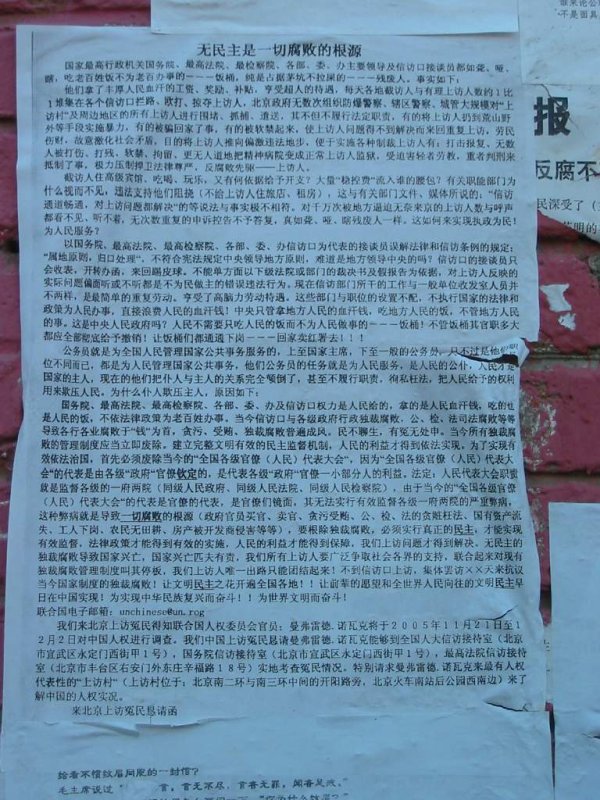 无民主是一切腐败的根源
国家最高行政机关国务院、最高法院、最检察院、各部、委、办主要领导及信访口接谈员都如聋、哑、
瞎，吃老百姓饭不为老百办事的－－－饭桶，纯是占据茅坑不拉屎的－－－残废人。事实如下：
他们拿了丰厚人民血汗的工资、奖励、补贴，享受超人的待遇，每天各地截访人与有理上访人数约1比
1堆集在各个信访口拦路、欧打、掠夺上访人，北京政府无数次组织防爆警察、辖区警察、城管大规模对“上
访村”及周边地区的所有上访人进行围堵、抓捕、遣送，其不但不履行法定职责，有的将上访人扔到荒山野
外等手段实施暴力，有的被骗回家了事，有的被软禁起来，使上访人问题得不到解决而来回重复上访，劳民
伤财，故意激化社会矛盾。目的将上访人推向偏激违法地步，便于实施各种制裁上访人有：打击报复、无数
人被打伤、打残、软禁、拘留、更无人道地把精神病院变成正常上访人监狱，受迫害轻者劳教，重者判刑来
抵制了事，极力压制捍卫法律尊严，反腐败先驱－－－上访人。
截访人住高级宾馆、吃喝、玩乐，又有何依据给予开支？大量“稳控费”流入谁的腰包？有关职能部门为
什么视而不见，违法支持他们阻挠（不给上访人住旅店、租房），这与有关部门文件、媒体所说的，“信访
道道畅通，对上访问题都解决”的等说法与事实极不相符。对千万次被地方逼迫无奈来京的上访人数与呼声
都看不见、听不着，无次数重复的申诉控告不予答复，真如聋、哑、瞎残废人一样，这如何来实现执政为民！
为人民服务？
以国务院、最高法院、最高检察院、各部、委、办信访口为代表的接谈员误解法律和信访条例的规定：
“属地原则，归口处理”。不符合宪法规定中央领导地方原则，难道是地方领导中央的吗？信访口的接谈员只
会收表，开转办函，来回踢皮球。不能单方面以下级法院或部门的裁决书及假报告为依据，对上访人反映的
实际问题偏面听或不听都是不为民做主的错误违法行为。现在信访部门所干的工作与一般单位收发室人员并
不两样，是最简单的重复劳动。享受了高脑力劳动待遇，这些部门与职位的设置不配，不执行国家的法律和
政策为人民办事，直接浪费人民的血汗钱！中央只管拿地方人民的血汗钱，吃地方人民的饭，不管地方人民
的事。这是中央人民政府吗？人民不需要只吃人民的饭而不为人民做事的－－－饭桶！不管饭桶其官职多大
都应全部彻底给予撤销！让饭桶们都通通下岗－－－回家卖红薯去！！！
公务员就是为全国人民管理国家公共事务服务的，上至国家主席，下至一般的公务员，只不过是他们职
位不同而已，都是为人民管理国家公共事务，他们公务员的任务就是为人民服务，是人民的公仆，人民才是
国家的主人，现在的他们把仆人与主人的关系完全颠倒了，甚至不履行职责，徇私枉法，把人民给予的权利
用来欺压人民。为什么仆人欺压主人，原因如下：
国务院、最高法院、最高检察院、各部、委、办及信访权力是人民给的，拿的是人民血汗钱，吃的也
是人民的饭，不依法律政策为老百姓办事。当今信访口与各级政府行政独裁腐败，公、检、法司法腐败等等
导致各行各业腐败于“钱”为首，贪污、受贿、独裁腐败普遍成风，民不聊生，才冤无处申。当今所有独裁腐
败的管理制度应当立即废除。建立完整文明有效的民主监督机制，人民的利益才得到依法实现。为了实现有
效依法治国，首先必须废除当今的“全国各级官僚（人民）代表大会”，因为“全国各级官僚（人民）代表大
会”的代表是由各级“政府”官僚钦定的，是代表各级“政府”官僚一小部分人的利益。法定：人民代表大会职责
就是监督各级的一府两院（同级人民政府、同级人民法院、同级人民检察院），由于当今的“全国各级官僚
（人民）代表大会”的代表是官僚的代表，是官僚们镜面，其无法实行有效监督各级一府两院的严重弊病，
这种弊病就是导致一切腐败的根源（政府官员买官、卖官、贪污受贿，公、检、法的贪赃枉法、国有资产流
失、工人下岗、农民无田耕、房产被开发商侵害等等），要根除独裁腐败，必须实行真正的民主，才能实现
有效监督，法律政策才能得到有效的实施，人民的利益才能得到保障，我们上访问题才得到解决。无民主的
独裁腐败导致国家灭亡，国家兴亡匹夫有责，我们所有上访人要广泛争取社会各界的支持，联合起来对现有
独裁腐败管理制度叫其停板，我们上访人唯一出路只能团结起！不到信访口上访、集体罢访××天来抗议
当今国家制度的独裁腐败！让文明民主之花开遍全国各地！！让前辈的愿望和全世界人民向往的文明民主早
日在中国实现！为实现中华民族复兴而奋斗！！为世界文明而奋斗！
联合国电子邮箱：unchinese@un.rog
我们来北京上访冤民得知联合国人权委员会官员：曼弗雷德.诺瓦克将于2005年11月21日至
12月2日对中国人权进行调查。我们中国上访冤民恳请曼弗雷德.诺瓦克能够到全国人大信访接待室（北京
市宣武区永定门西街甲1号），国务院信访接待室（北京市宣武区永定门西街甲1号），最高法院信访接待
室（北京市丰台区右安门外东庄辛福路18号）实地考查冤民情况。特别请求曼弗雷德.诺瓦克来最有人权
代表性的“上访村”（上访村位于：北京南二环与南三环中间的开阳路旁，北京火车南站后公园西南边）来了
解中国的人权实况。
来北京上访冤民恳请函
给看不惯敌眉同胞的一封信？
毛主席说过“
言，言无不尽，言者无罪，闻者足戒。”
报
反腐不
民深受了
不是面具